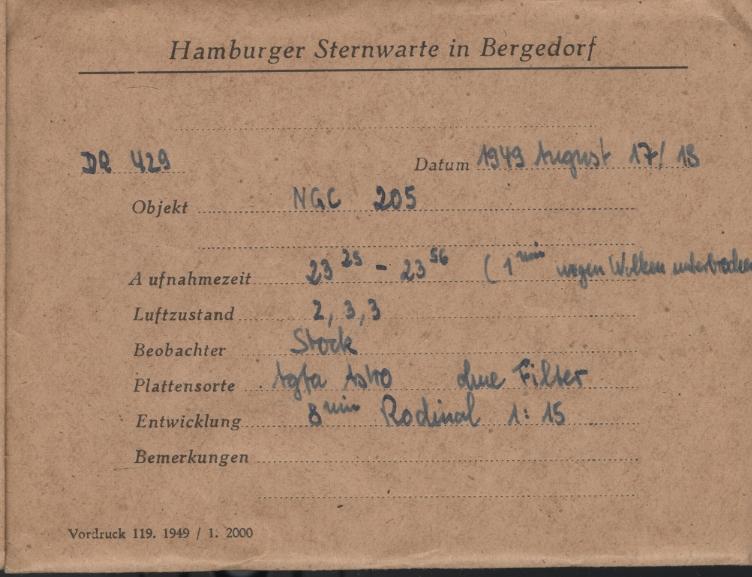 Hamburger Sternwarte in Bergedorf
DR 429 Datum 1949 August 17/18
Objekt NGC 205
Aufnahmezeit 23 25 - 23 56 (1 min wegen Wolken unterbrochen
Luftzustand 2, 3, 3
Beobachter Stock
Plattensorte Agfa Astro ohne Filter
Entwicklung 8 min Rodinal 1:15
Bemerkungen
Vordruck 119. 1949 / 1. 2000